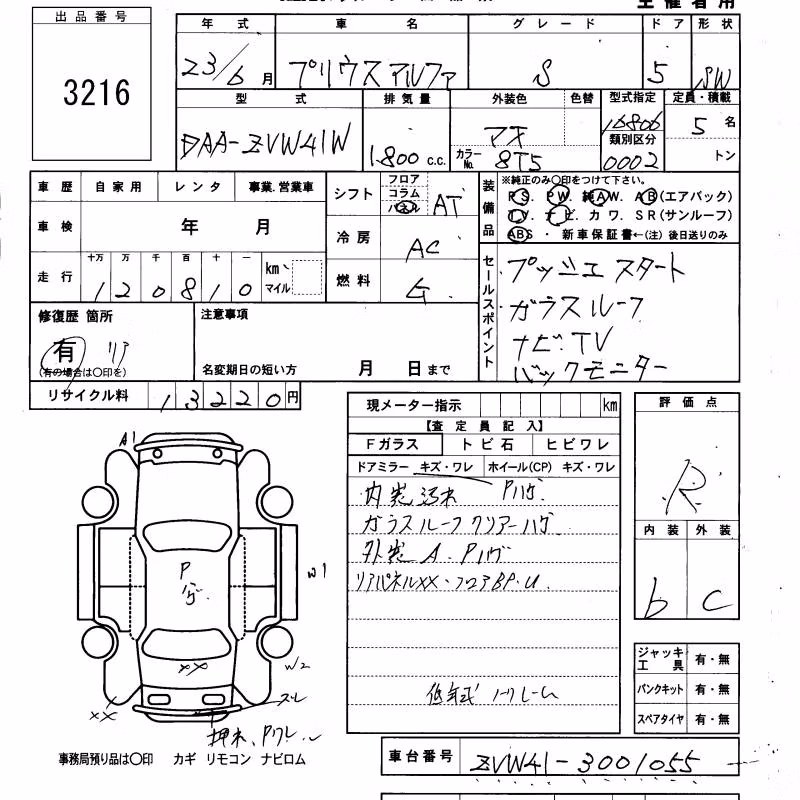 主催者用
出品番号
3216
年式 車名 グレード ドア 形状
23/6月 プリウスアルファ S 5 SW
型式 排気量 外装色 色替 型式指定 定員・積載
DAA-ZVW41W 1800 c.c. カラーNo. 8T5 16806 5名
類別区分 0002 トン
車歴 自家用 レンタ 事業.営業車
シフト フロア コラム パネル AT
装備品 ※純正のみ〇印をつけて下さい。
PS. PW. 純AW. AB(エアバック)
TV. ナビ. カワ. SR(サンルーフ)
ABS ・ 新車保証書←(注) 後日送りのみ
車検 年 月
冷房 AC
走行 十万 万 千 百 十 一 km・マイル
120810
燃料 G
セールスポイント
プッシュスタート
ガラスルーフ
ナビ.TV
バックモニター
修復歴 箇所
有 リア
(有の場合は〇印を)
注意事項
名変期日の短い方 月 日まで
リサイクル料 13220円
現メーター指示 km
【査定員記入】
Fガラス トビ石 ヒビワレ
ドアミラー キズ・ワレ ホイール(CP) キズ・ワレ
内装汚れ Pハゲ
ガラスルーフクリアーハゲ
外装 A. Pハゲ
リアパネルXX・フロアBP.U
評価点
R
内装 外装
b C
A1
P
ハゲ
W1
XX
W2
XX
ズレ
ジャッキ工具 有・無
パンクキット 有・無
スペアタイヤ 有・無
事務局預り品は〇印 カギ リモコン ナビロム
車台番号 ZVW41-3001055